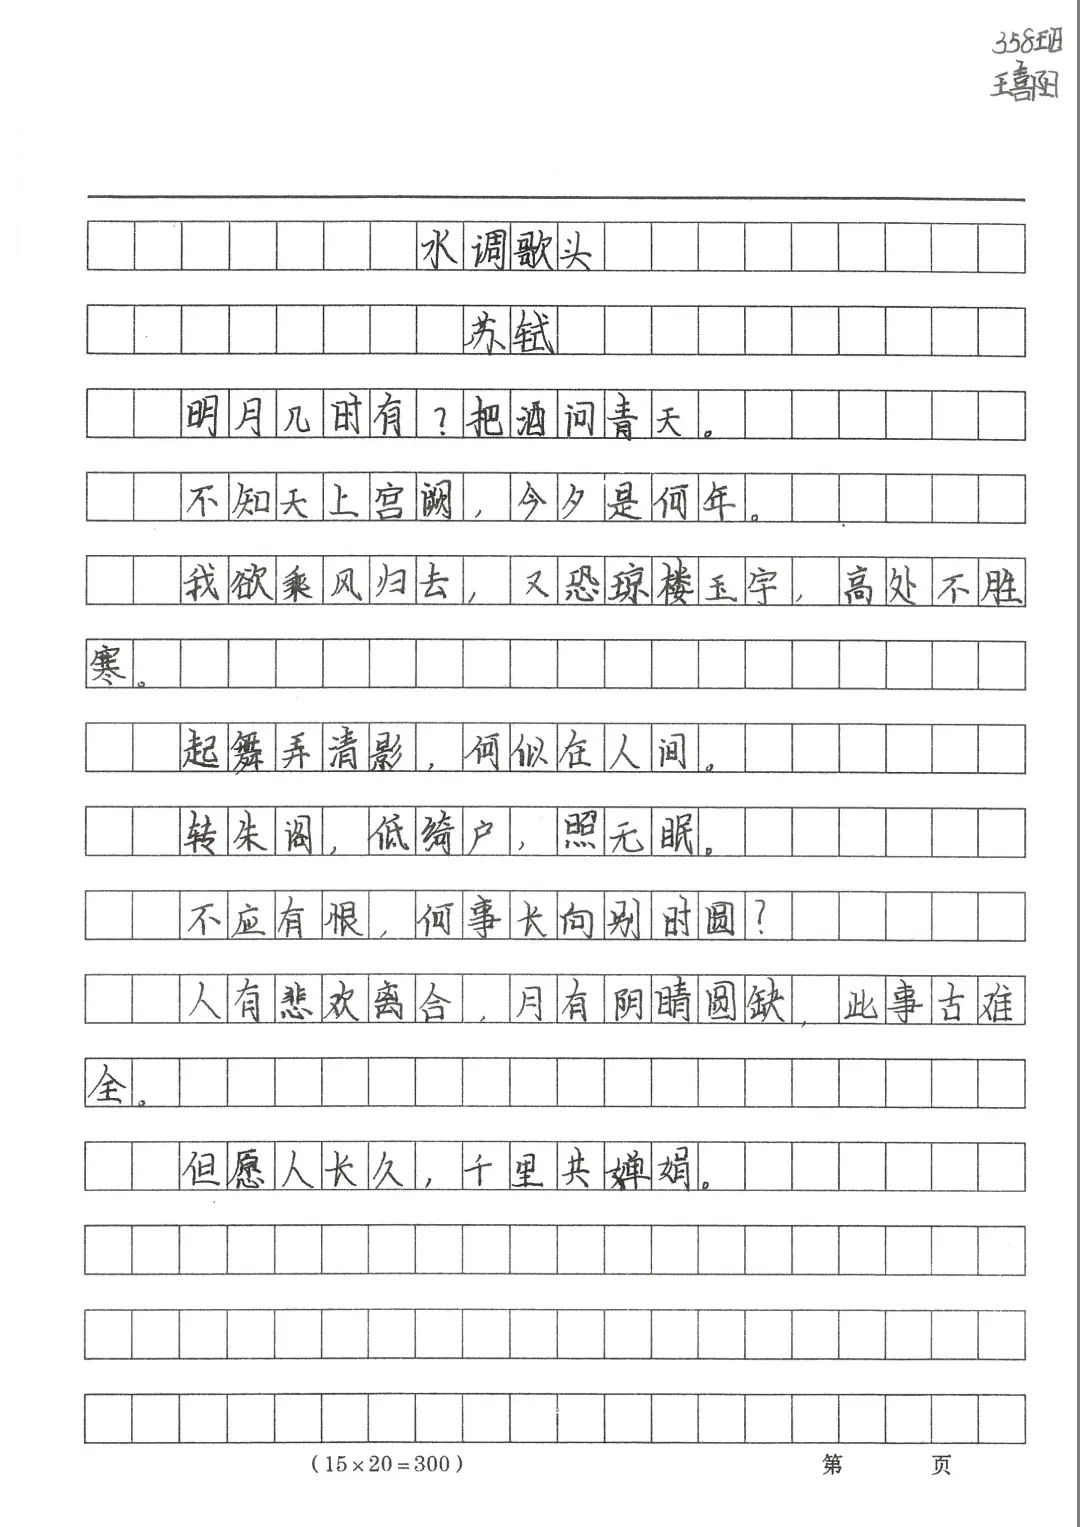 358班
王喜阳
水调歌头
苏轼
明月几时有？把酒问青天。
不知天上宫阙，今夕是何年。
我欲乘风归去，又恐琼楼玉宇，高处不胜
寒。
起舞弄清影，何似在人间。
转朱阁，低绮户，照无眠。
不应有恨，何事长向别时圆？
人有悲欢离合，月有阴晴圆缺，此事古难
全。
但愿人长久，千里共婵娟。
（15×20=300） 第 页